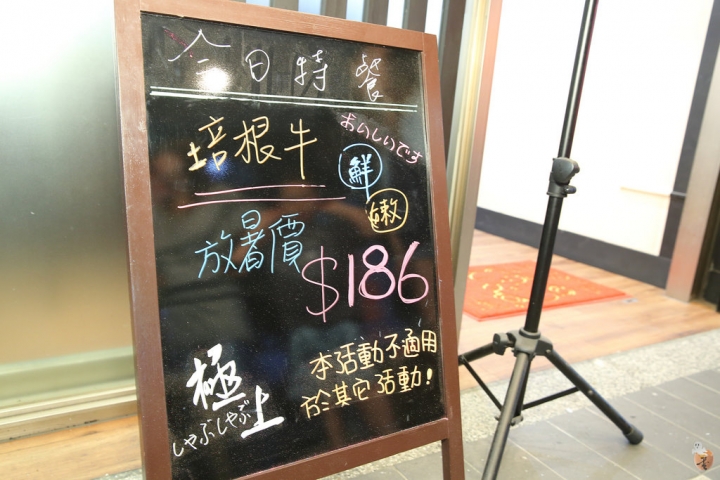 今日特餐
培根牛
おいしいです
鮮
嫩
放暑價
$186
極上
しゃぶしゃぶ
本活動不適用
於其它活動!